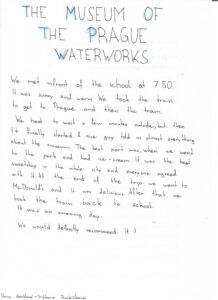 THE MUSEUM OF
THE PRAGUE
WATERWORKS
We met infront of the school at 7:50.
It was sunny and warm. We took the train
to get to Prague and then the tram.
We had to wait a few minutes outside, but then
it finally started. A nice guy told us almost everything
about the museum. The best part was, when we went
to the park and had ice-cream. It was the best
sweetshop in the whole city and everyone agreed
with it. At the end of the trip we went to
McDonald's and it was delicious. After that we
took the train back to school.
It was an amazing day.
We would defenetly recommend it :)